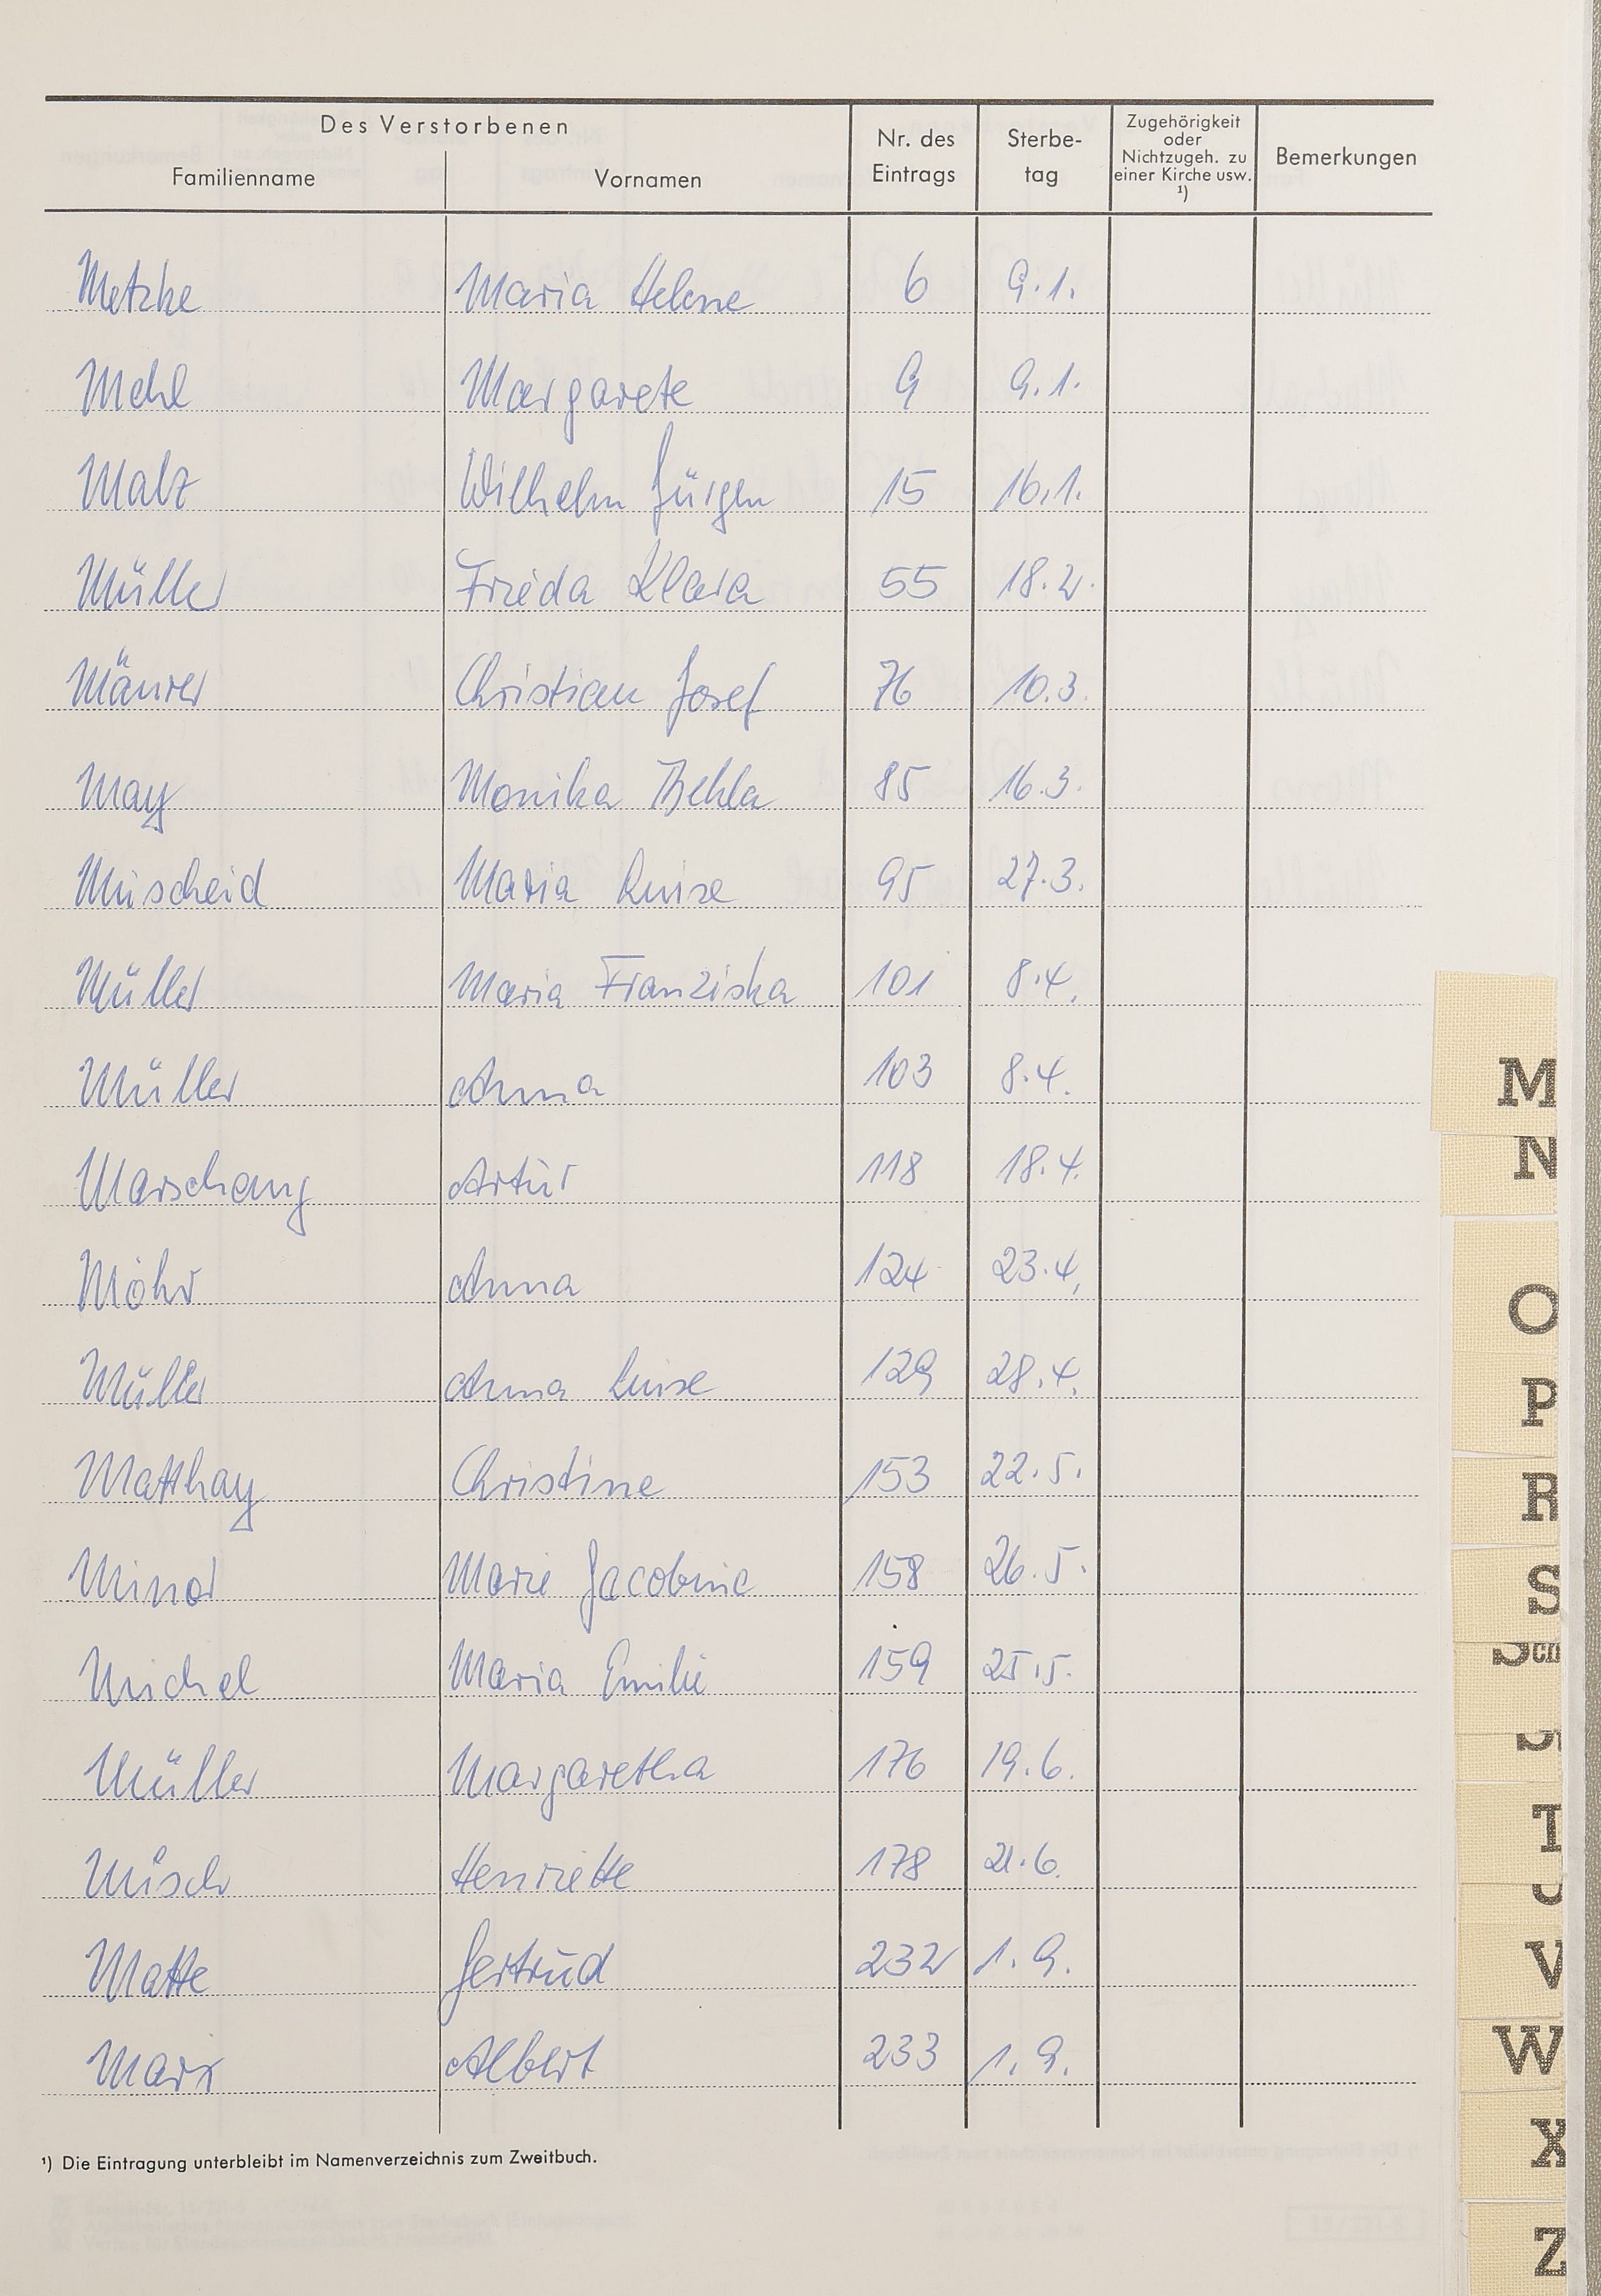 Des Verstorbenen
Familienname Vornamen Nr. des Eintrags Sterbe-tag Zugehörigkeit oder Nichtzugeh. zu einer Kirche usw. ¹) Bemerkungen
Metzke Maria Helene 6 9.1.
Mehl Margarete 9 9.1.
Malz Wilhelm Jürgen 15 16.1.
Müller Frieda Klara 55 18.2.
Mäurer Christian Josef 76 10.3.
May Monika Thekla 85 16.3.
Muscheid Maria Luise 95 27.3.
Müller Maria Franziska 101 8.4.
Müller Anna 103 8.4.
Marschang Artur 118 18.4.
Möhr Anna 124 23.4.
Müller Anna Luise 129 28.4.
Matthay Christine 153 22.5.
Minor Marie Jacobine 158 26.5.
Michel Maria Emilie 159 25.5.
Müller Margaretha 176 19.6.
Müsch Henriette 178 21.6.
Matte Gertrud 232 1.9.
Marx Albert 233 1.9.
¹) Die Eintragung unterbleibt im Namenverzeichnis zum Zweitbuch.
M
N
O
P
R
S
Sch
T
V
W
X
Z